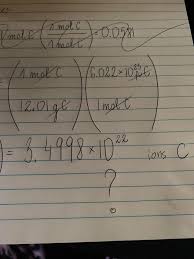 mol C (1 mol C / 1 mol C) = 0.0581
= (1 mol C / 12.01 g C) (6.022 × 10²³ / 1 mol C)
) = 3.4998 × 10²² ions C
?